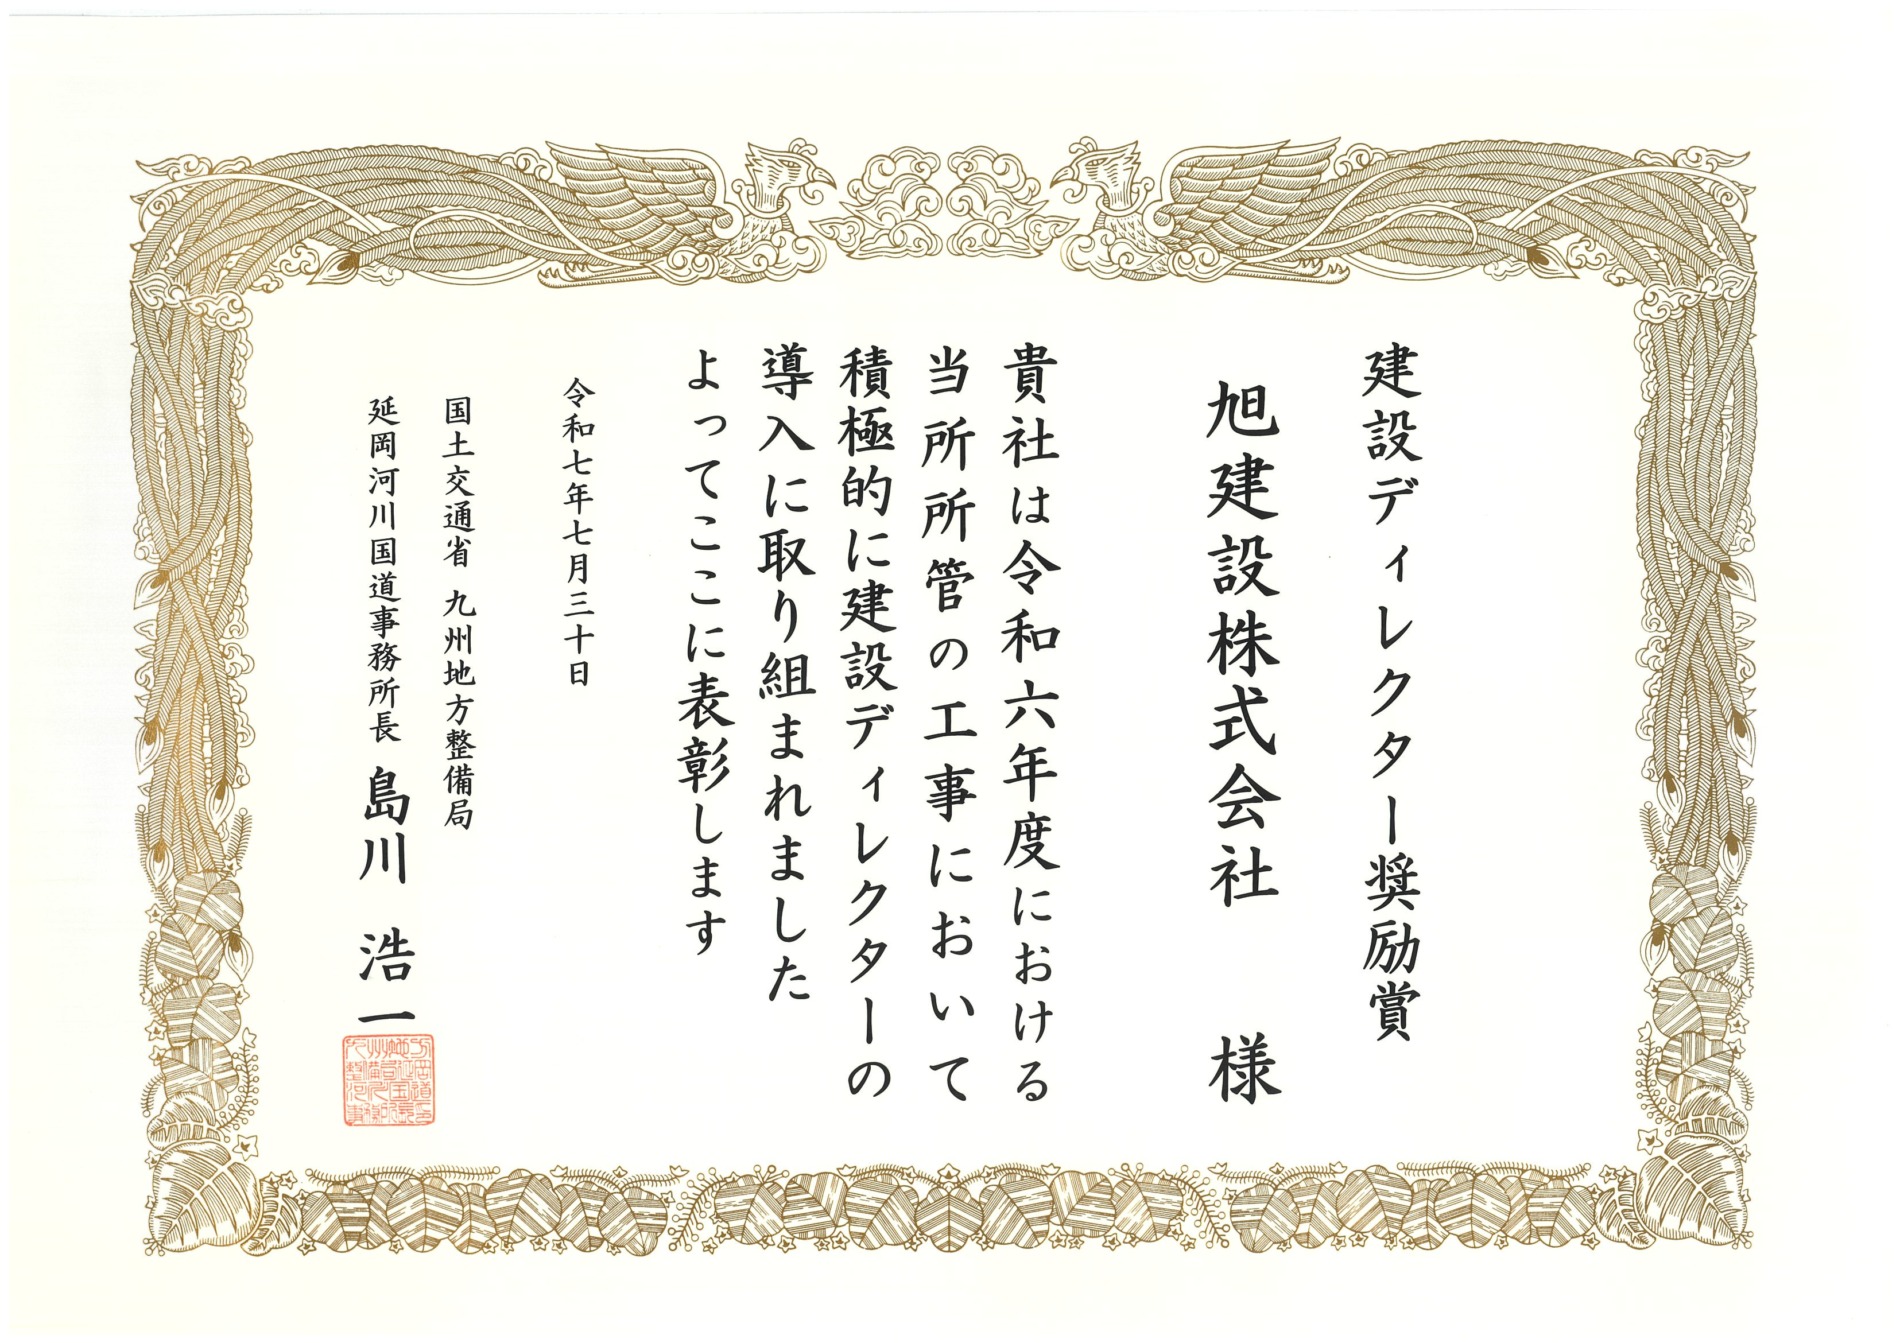 建設ディレクター奨励賞
旭建設株式会社　様
貴社は令和六年度における
当所所管の工事において
積極的に建設ディレクターの
導入に取り組まれました
よってここに表彰します
令和七年七月三十日
国土交通省 九州地方整備局
延岡河川国道事務所長 島川 浩一